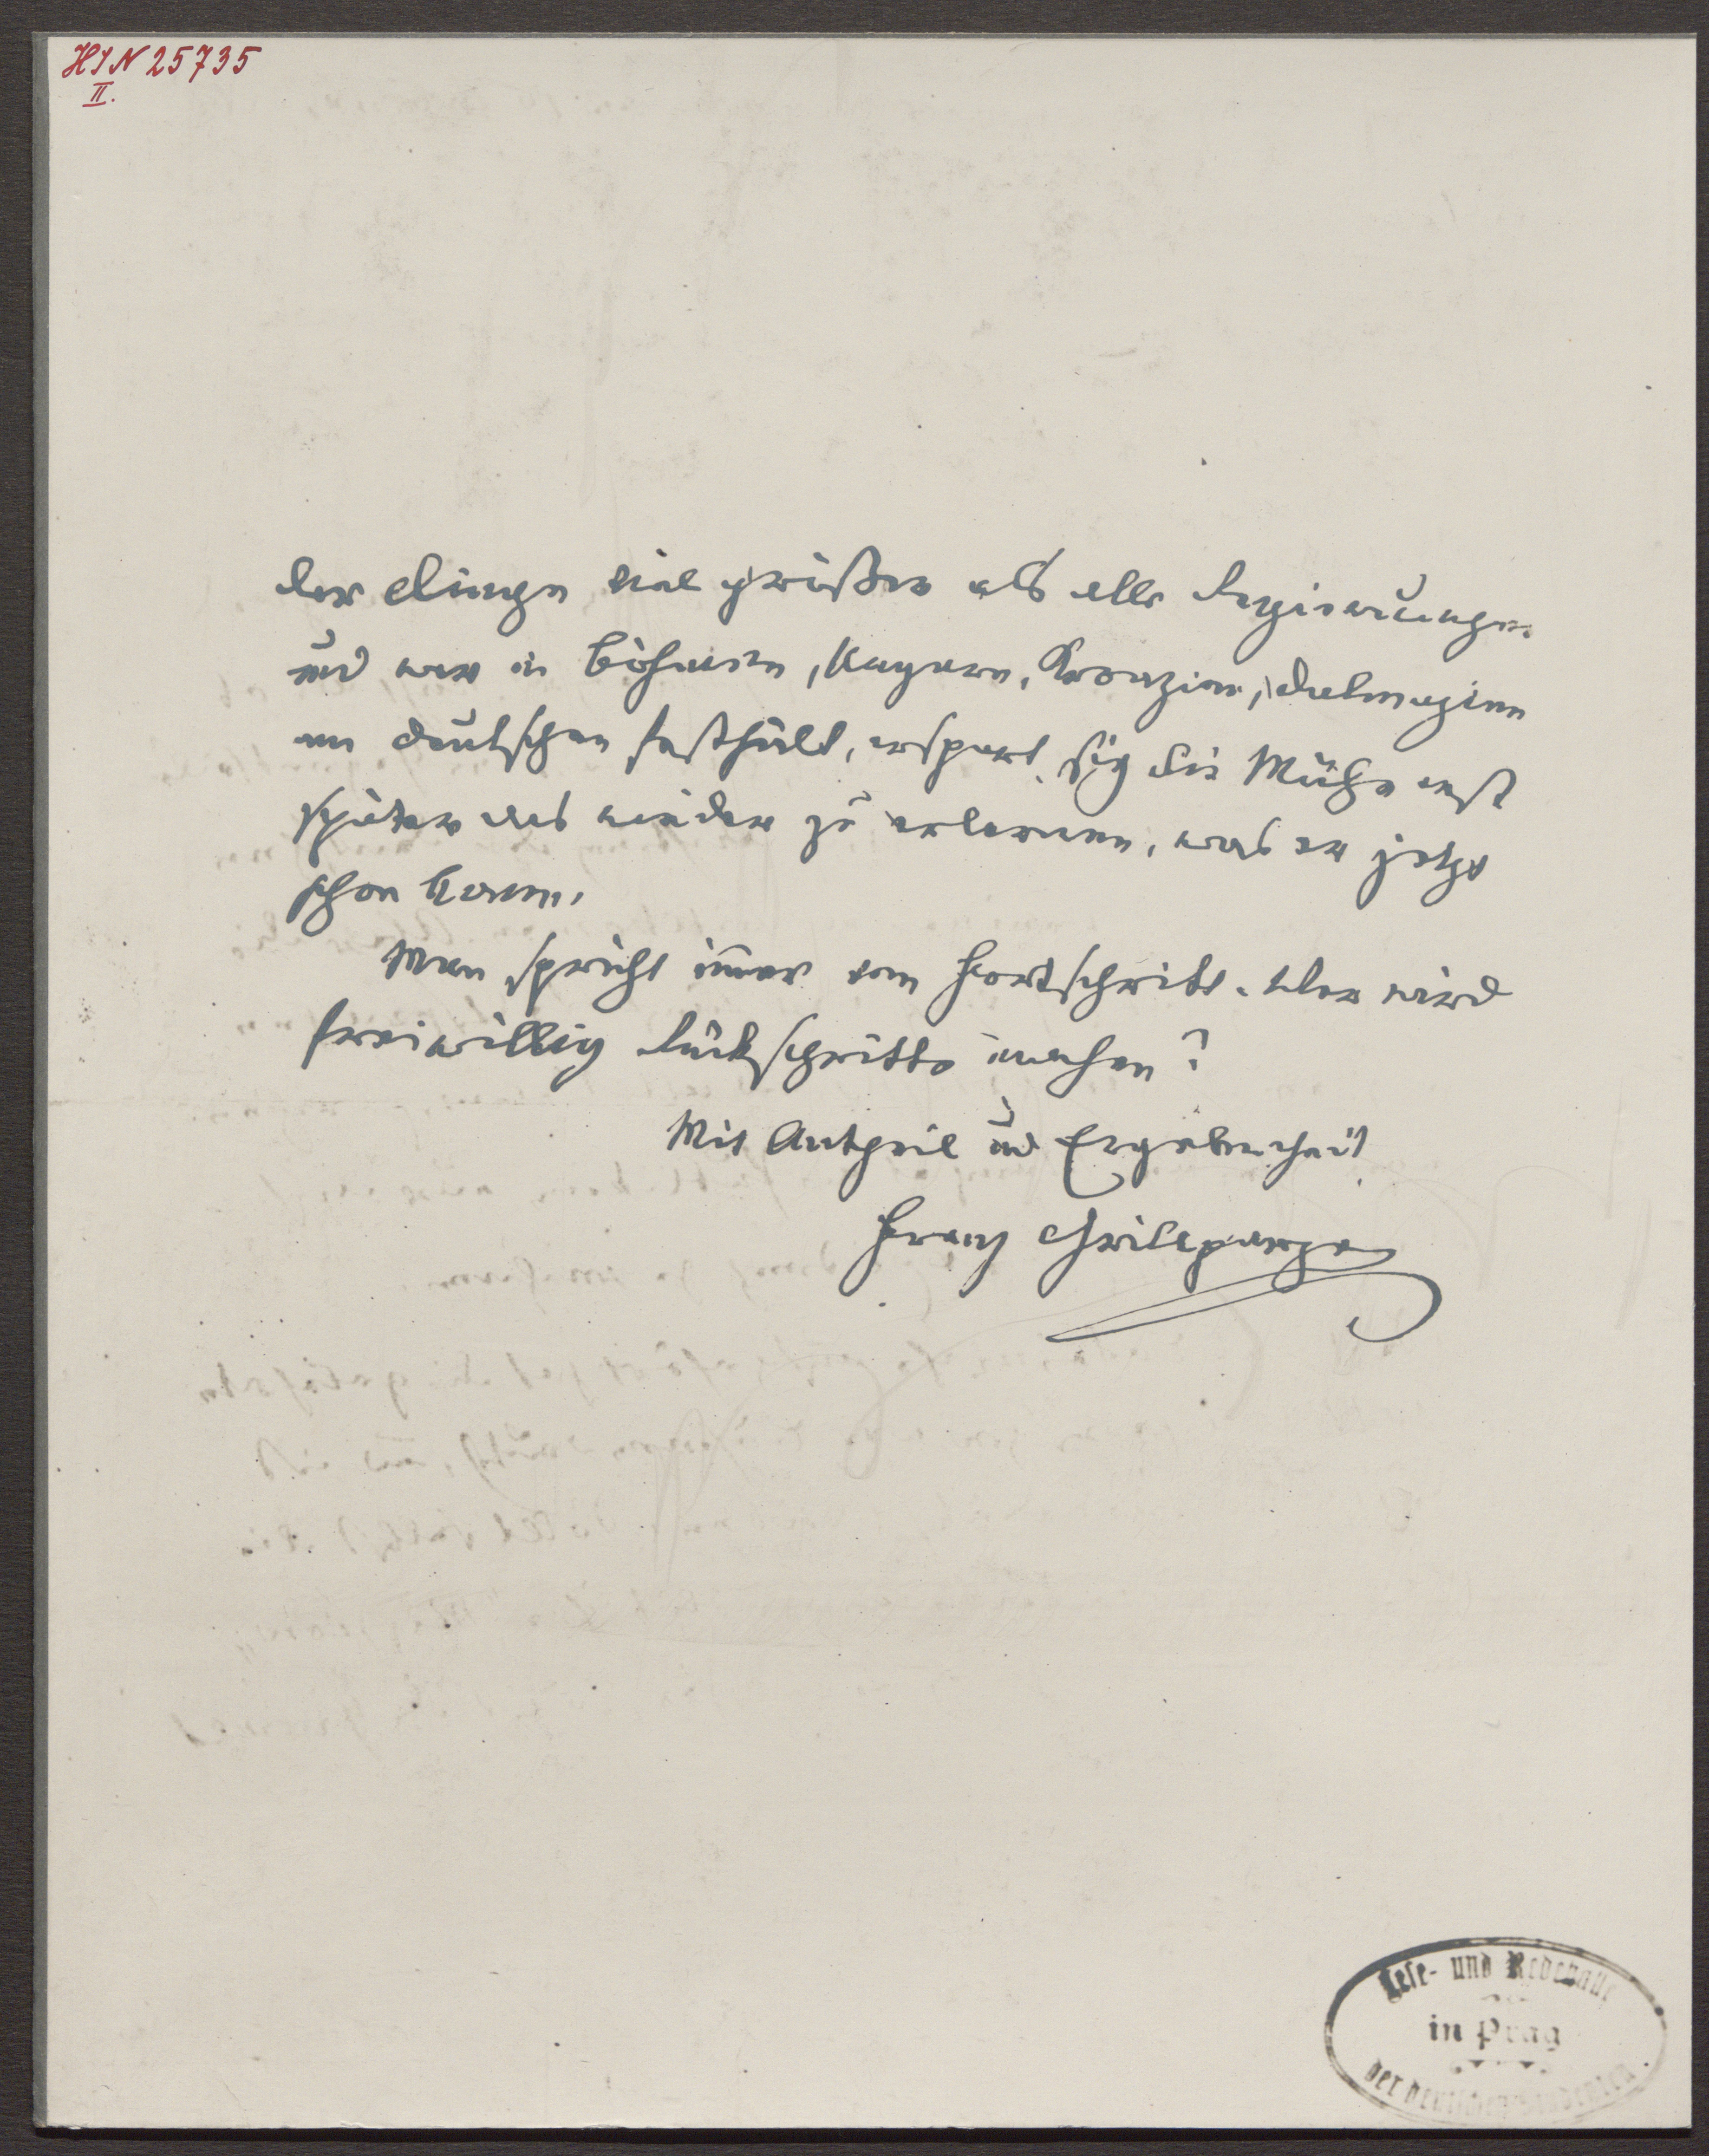 HIN 25735
II.
der Dinge viel größer als alle Regierungen
und wer in Böhmen, Ungarn, Kroazien, Dalmazien
am Deutschen festhält, erspart sich die Mühe erst
später das wieder zu erlernen, was er jetzt
schon kann.
Man spricht immer vom Fortschritt. Wer wird
freiwillig Rückschritte machen?
Mit Antheil und Ergebenheit
Franz Grillparzer
Lese- und Redehalle
in Prag
der deutschen Studenten